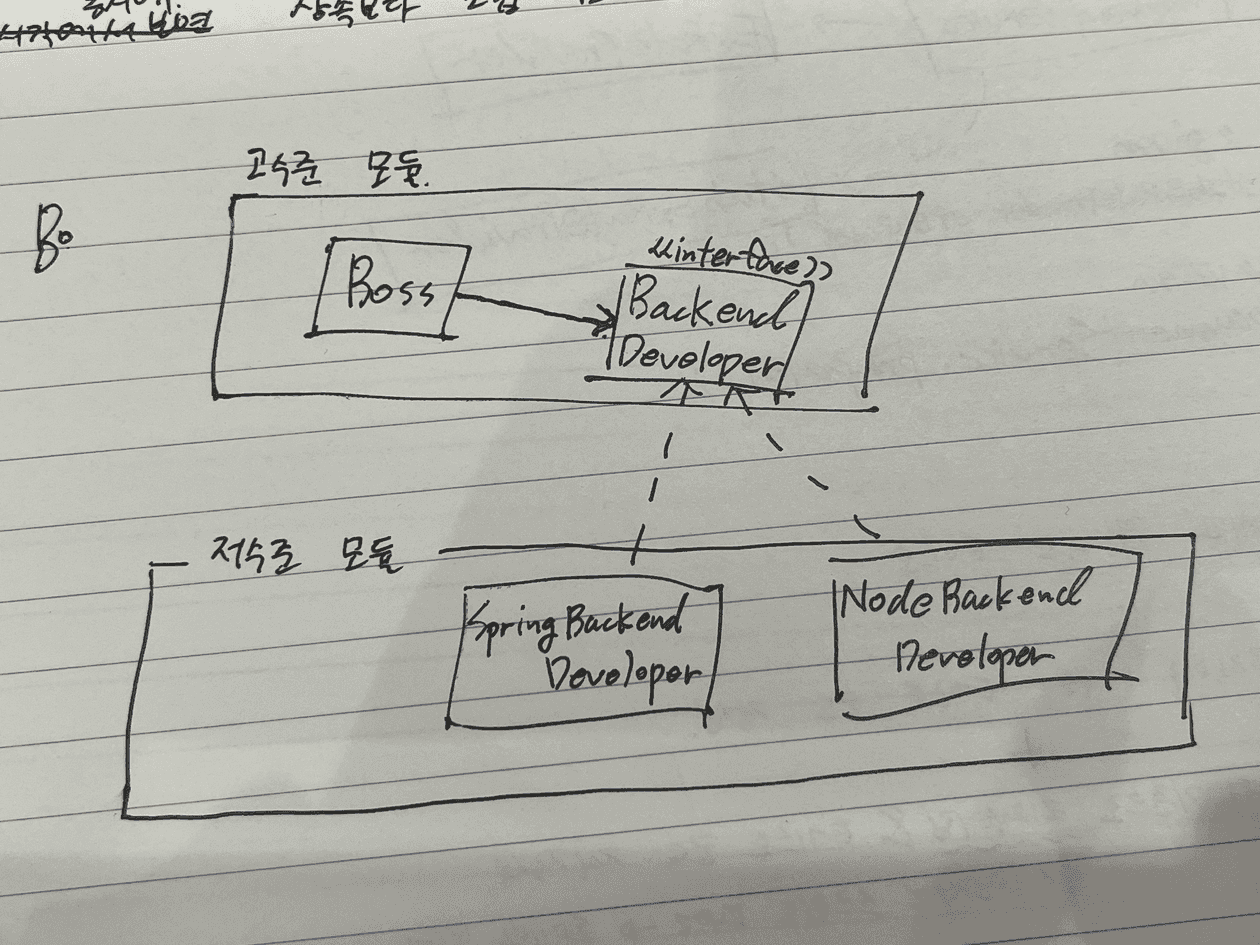 시각에서 보면
상속보다
고수준 모듈.
Bo
Boss
<<interface>>
Backend
Developer
저수준 모듈
Spring Backend
Developer
Node Backend
Developer